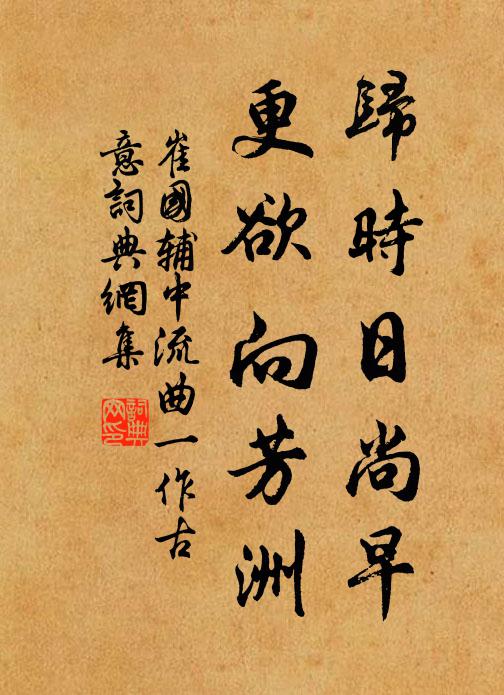 歸時日尚早
更欲向芳洲
崔國輔中流曲一作古
意詞典網集
詞典
网印